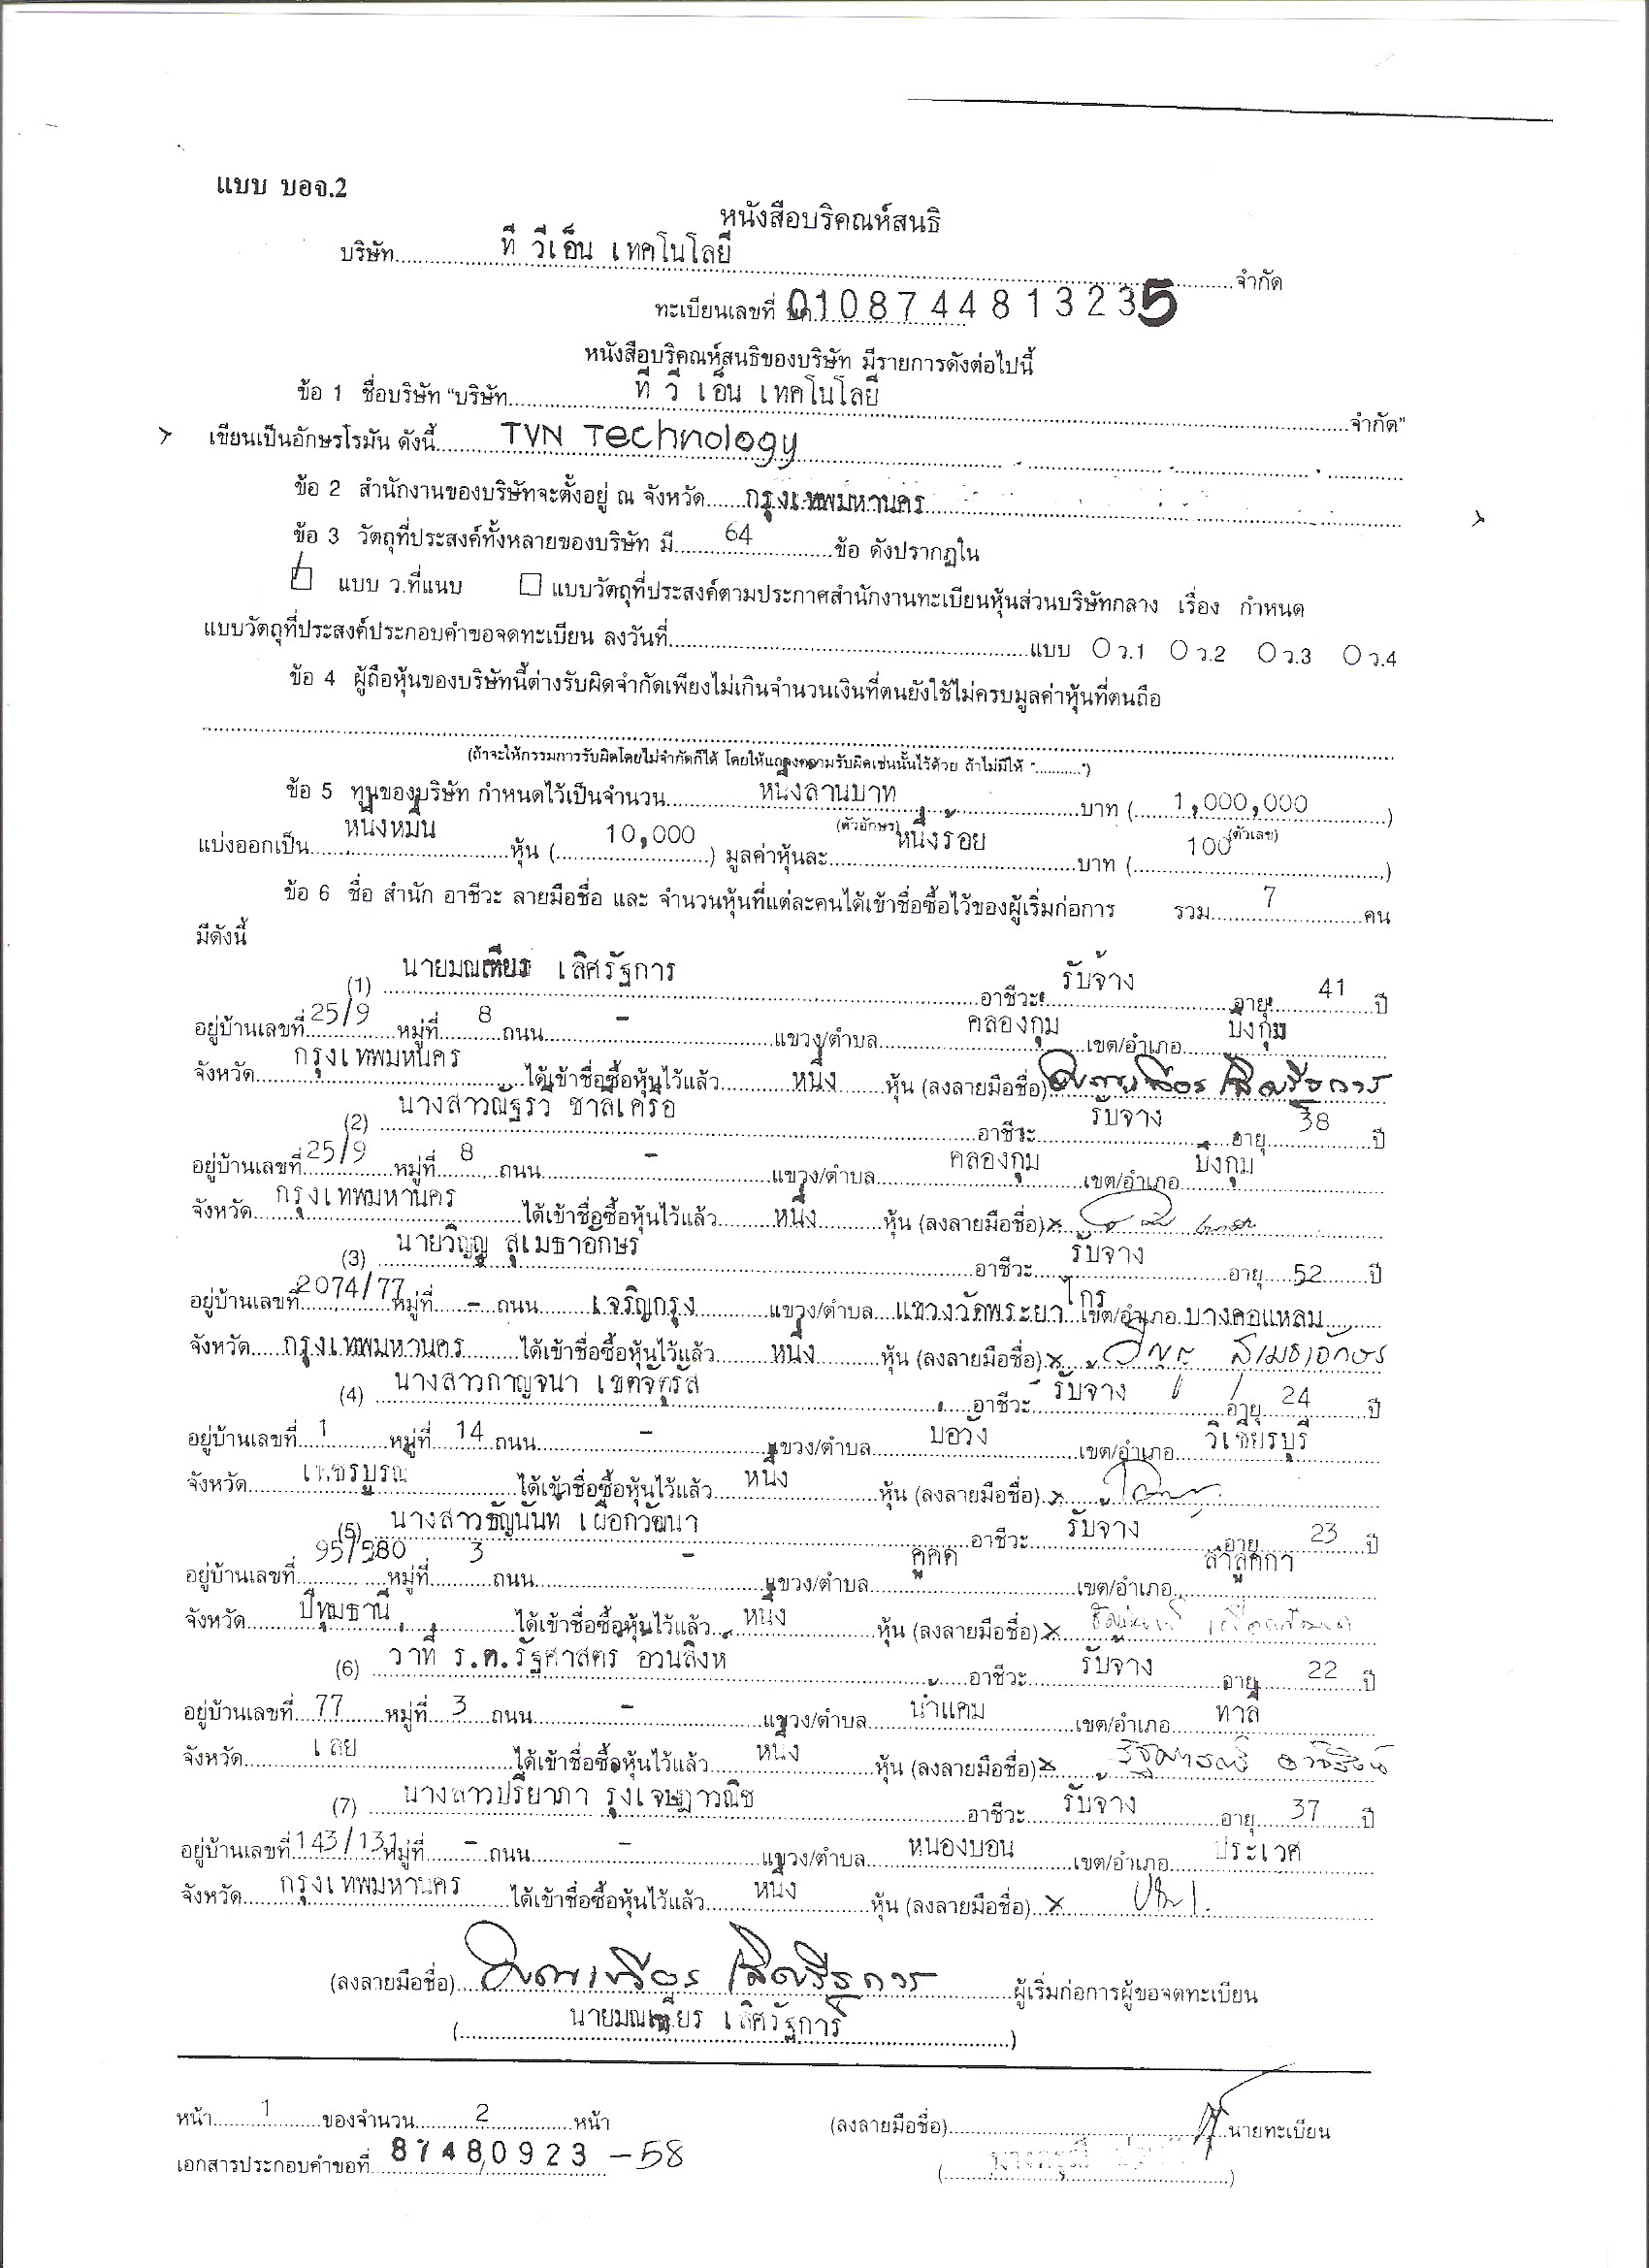 แบบ บอจ.2
หนังสือบริคณห์สนธิ
บริษัท ที วีเอ็น เทคโนโลยี จำกัด
ทะเบียนเลขที่ 0108744813235
หนังสือบริคณห์สนธิของบริษัท มีรายการดังต่อไปนี้
ข้อ 1 ชื่อบริษัท "บริษัท ที วี เอ็น เทคโนโลยี จำกัด"
เขียนเป็นอักษรโรมัน ดังนี้ TVN Technology
ข้อ 2 สำนักงานของบริษัทจะตั้งอยู่ ณ จังหวัด กรุงเทพมหานคร
ข้อ 3 วัตถุที่ประสงค์ทั้งหลายของบริษัท มี 64 ข้อ ดังปรากฏใน
แบบ ว.ที่แนบ แบบวัตถุที่ประสงค์ตามประกาศสำนักงานทะเบียนหุ้นส่วนบริษัทกลาง เรื่อง กำหนด
แบบวัตถุที่ประสงค์ประกอบคำขอจดทะเบียน ลงวันที่ แบบ ว.1 ว.2 ว.3 ว.4
ข้อ 4 ผู้ถือหุ้นของบริษัทนี้ต่างรับผิดจำกัดเพียงไม่เกินจำนวนเงินที่ตนยังใช้ไม่ครบมูลค่าหุ้นที่ตนถือ
(ถ้าจะให้กรรมการรับผิดโดยไม่จำกัดก็ได้ โดยให้แถลงความรับผิดเช่นนั้นไว้ด้วย ถ้าไม่มีให้ "...........")
ข้อ 5 ทุนของบริษัท กำหนดไว้เป็นจำนวน หนึ่งล้านบาท บาท (1,000,000)
(ตัวอักษร) (ตัวเลข)
แบ่งออกเป็น หนึ่งหมื่น หุ้น (10,000) มูลค่าหุ้นละ หนึ่งร้อย บาท (100)
ข้อ 6 ชื่อ สำนัก อาชีวะ ลายมือชื่อ และ จำนวนหุ้นที่แต่ละคนได้เข้าชื่อซื้อไว้ของผู้เริ่มก่อการ รวม 7 คน
มีดังนี้
(1) นายมณเฑียร เลิศรัฐการ อาชีวะ รับจ้าง อายุ 41 ปี
อยู่บ้านเลขที่ 25/9 หมู่ที่ 8 ถนน - แขวง/ตำบล คลองกุ่ม เขต/อำเภอ บึงกุ่ม
จังหวัด กรุงเทพมหนคร ได้เข้าชื่อซื้อหุ้นไว้แล้ว หนึ่ง หุ้น (ลงลายมือชื่อ)
(2) นางสาวณัฐรวี ชาลีเครือ อาชีวะ รับจ้าง อายุ 38 ปี
อยู่บ้านเลขที่ 25/9 หมู่ที่ 8 ถนน - แขวง/ตำบล คลองกุ่ม เขต/อำเภอ บึงกุ่ม
จังหวัด กรุงเทพมหานคร ได้เข้าชื่อซื้อหุ้นไว้แล้ว หนึ่ง หุ้น (ลงลายมือชื่อ) x
(3) นายวิญญู สุเมธาอักษร อาชีวะ รับจ้าง อายุ 52 ปี
อยู่บ้านเลขที่ 2074/77 หมู่ที่ - ถนน เจริญกรุง แขวง/ตำบล แขวงวัดพระยาไกร เขต/อำเภอ บางคอแหลม
จังหวัด กรุงเทพมหานคร ได้เข้าชื่อซื้อหุ้นไว้แล้ว หนึ่ง หุ้น (ลงลายมือชื่อ) x
(4) นางสาวกาญจนา เขตจัตุรัส อาชีวะ รับจ้าง อายุ 24 ปี
อยู่บ้านเลขที่ 1 หมู่ที่ 14 ถนน - แขวง/ตำบล บ่อรัง เขต/อำเภอ วิเชียรบุรี
จังหวัด เพชรบูรณ์ ได้เข้าชื่อซื้อหุ้นไว้แล้ว หนึ่ง หุ้น (ลงลายมือชื่อ) x
(5) นางสาวธัญนันท์ เผือกวัฒนา อาชีวะ รับจ้าง อายุ 23 ปี
อยู่บ้านเลขที่ 95/580 หมู่ที่ 3 ถนน - แขวง/ตำบล คูคต เขต/อำเภอ ลำลูกกา
จังหวัด ปทุมธานี ได้เข้าชื่อซื้อหุ้นไว้แล้ว หนึ่ง หุ้น (ลงลายมือชื่อ) x
(6) ว่าที่ ร.ต.รัฐศาสตร์ อ้วนสิงห์ อาชีวะ รับจ้าง อายุ 22 ปี
อยู่บ้านเลขที่ 77 หมู่ที่ 3 ถนน - แขวง/ตำบล น้ำแคม เขต/อำเภอ ท่าลี่
จังหวัด เลย ได้เข้าชื่อซื้อหุ้นไว้แล้ว หนึ่ง หุ้น (ลงลายมือชื่อ) x
(7) นางสาวปรียาภา รุ่งเจษฎาวณิช อาชีวะ รับจ้าง อายุ 37 ปี
อยู่บ้านเลขที่ 143/131 หมู่ที่ - ถนน - แขวง/ตำบล หนองบอน เขต/อำเภอ ประเวศ
จังหวัด กรุงเทพมหานคร ได้เข้าชื่อซื้อหุ้นไว้แล้ว หนึ่ง หุ้น (ลงลายมือชื่อ) x
(ลงลายมือชื่อ) ผู้เริ่มก่อการผู้ขอจดทะเบียน
(นายมณเฑียร เลิศรัฐการ)
หน้า 1 ของจำนวน 2 หน้า (ลงลายมือชื่อ) นายทะเบียน
เอกสารประกอบคำขอที่ 87480923-58